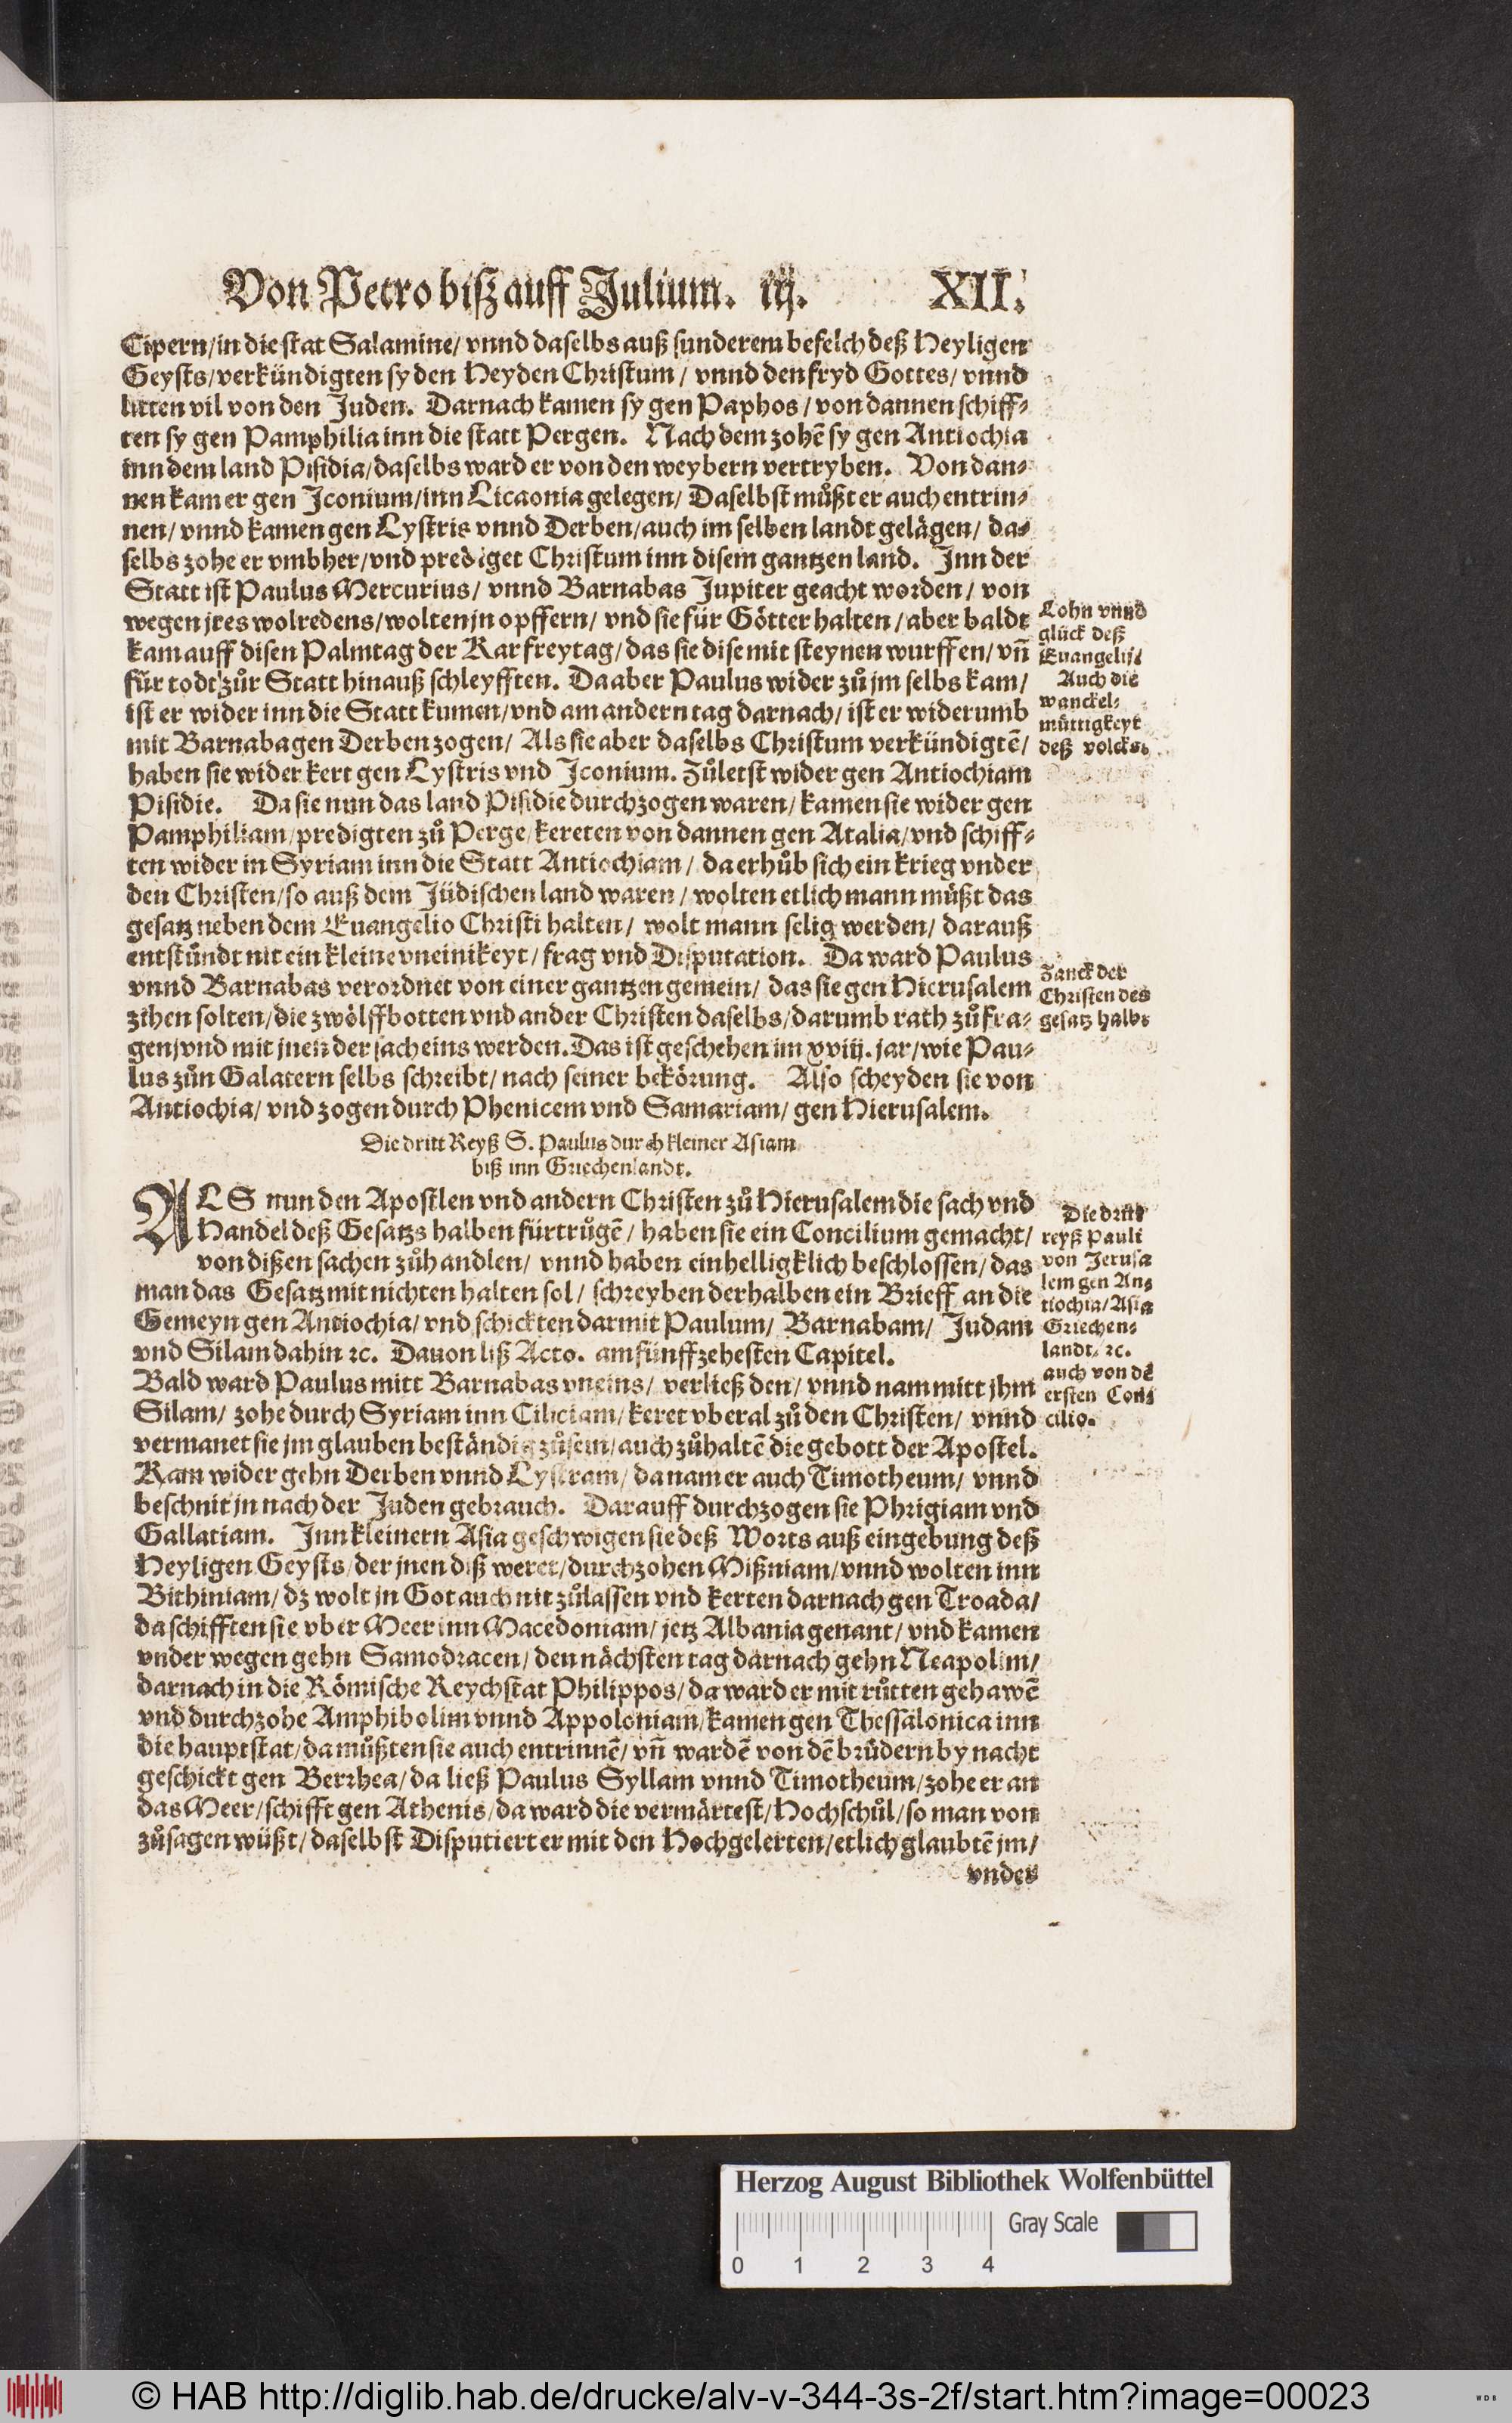 Von Petro biß auff Julium. iij. XII.
Cipern/in die stat Salamine/ vnnd daselbs auß sunderem befelch deß Heyligen
Geysts/verkündigten sy den Heyden Christum / vnnd den fryd Gottes/ vnnd
litten vil von den Juden. Darnach kamen sy gen Paphos / von dannen schiff-
ten sy gen Pamphilia inn die statt Pergen. Nach dem zohē sy gen Antiochia
inn dem land Pisidia/daselbs ward er von den weybern vertryben. Von dan-
nen kam er gen Iconium/inn Licaonia gelegen/ Daselbst můßt er auch entrin-
nen/ vnnd kamen gen Lystris vnnd Derben/auch im selben landt gelägen/ da-
selbs zohe er vmbher/vnd prediget Christum inn disem gantzen land. Inn der
Statt ist Paulus Mercurius/ vnnd Barnabas Jupiter geacht worden/ von
wegen jres wolredens/wolten jn opffern/ vnd sie für Götter halten / aber baldt
kam auff disen Palmtag der Karfreytag/das sie dise mit steynen wurffen/ vn̄
für todt zůr Statt hinauß schleyfften. Da aber Paulus wider zů jm selbs kam/
ist er wider inn die Statt kumen/vnd am andern tag darnach/ ist er widerumb
mit Barnaba gen Derben zogen/ Als sie aber daselbs Christum verkündigtē/
haben sie wider kert gen Lystris vnd Iconium. Zůletst wider gen Antiochiam
Pisidie. Da sie nun das land Pisidie durchzogen waren/ kamen sie wider gen
Pamphiliam/predigten zů Perge/kereten von dannen gen Atalia/vnd schiff-
ten wider in Syriam inn die Statt Antiochiam / da erhůb sich ein krieg vnder
den Christen/so auß dem Jüdischen land waren / wolten etlich mann müßt das
gesatz neben dem Euangelio Christi halten/ wolt mann selig werden/ darauß
entstůndt nit ein kleine vneinikeyt/ frag vnd Disputation. Da ward Paulus
vnnd Barnabas verordnet von einer gantzen gemein/ das sie gen Hierusalem
zihen solten/die zwölffbotten vnd ander Christen daselbs/darumb rath zů fra-
gen/vnd mit jnen der sach eins werden. Das ist geschehen im xviij. jar/wie Pau-
lus zůn Galatern selbs schreibt/ nach seiner bekörung. Also scheyden sie von
Antiochia/ vnd zogen durch Phenicem vnd Samariam/ gen Hierusalem.
Lohn vnnd
glück deß
Euangelij.
Auch die
wanckel-
müttigkeyt
deß volcks.
Zanck der
Christen des
gesatz halbē
Die dritt Reyß S. Paulus durch kleiner Asiam
biß inn Griechenlandt.
ALS nun den Apostlen vnd andern Christen zů Hierusalem die sach vnd
Handel deß Gesatzs halben fürtrůgē / haben sie ein Concilium gemacht/
von dißen sachen zůhandlen/ vnnd haben einhelligklich beschlossen/ das
man das Gesatz mit nichten halten sol / schreyben derhalben ein Brieff an die
Gemeyn gen Antiochia/ vnd schickten darmit Paulum/ Barnabam/ Judam
vnd Silam dahin ⁊c. Dauon liß Acto. am fünffzehesten Capitel.
Bald ward Paulus mitt Barnabas vneins/ verließ den/ vnnd nam mitt jhm
Silam/ zohe durch Syriam inn Ciliciam/ keret vberal zů den Christen/ vnnd
vermanet sie jm glauben beständig zůsein/auch zůhaltē die gebott der Apostel.
Kam wider gehn Derben vnnd Lystram/ da nam er auch Timotheum/ vnnd
beschnit jn nach der Juden gebrauch. Darauff durchzogen sie Phrigiam vnd
Gallatiam. Inn kleinern Asia geschwigen sie deß Worts auß eingebung deß
Heyligen Geysts/der jnen diß weret/durchzohen Mißniam/vnnd wolten inn
Bithiniam/ dz wolt jn Got auch nit zůlassen vnd kerten darnach gen Troada/
da schifften sie vber Meer inn Macedoniam/ jetz Albania genant/ vnd kamen
vnder wegen gehn Samodracen/ den nächsten tag darnach gehn Neapolim/
darnach in die Römische Reychstat Philippos/ da ward er mit růtten gehawē
vnd durchzohe Amphibolim vnnd Appoloniam/kamen gen Thessalonica inn
die hauptstat/da můßten sie auch entrinnē/ vn̄ wardē von dē brüdern by nacht
geschickt gen Berrhea/da ließ Paulus Syllam vnnd Timotheum/zohe er an
das Meer/schifft gen Athenis/da ward die vermärtest/Hochschůl/so man von
zůsagen wüßt/daselbst Disputiert er mit den Hochgelerten/etlich glaubtē jm/
vnder
Die dritt
reyß Pauli
von Jerusa
lem gen An-
tiochia/Asia
Griechen-
landt. ⁊c.
auch von dē
ersten Con-
cilio.
Herzog August Bibliothek Wolfenbüttel
Gray Scale
0 1 2 3 4
© HAB http://diglib.hab.de/drucke/alv-v-344-3s-2f/start.htm?image=00023
WDB